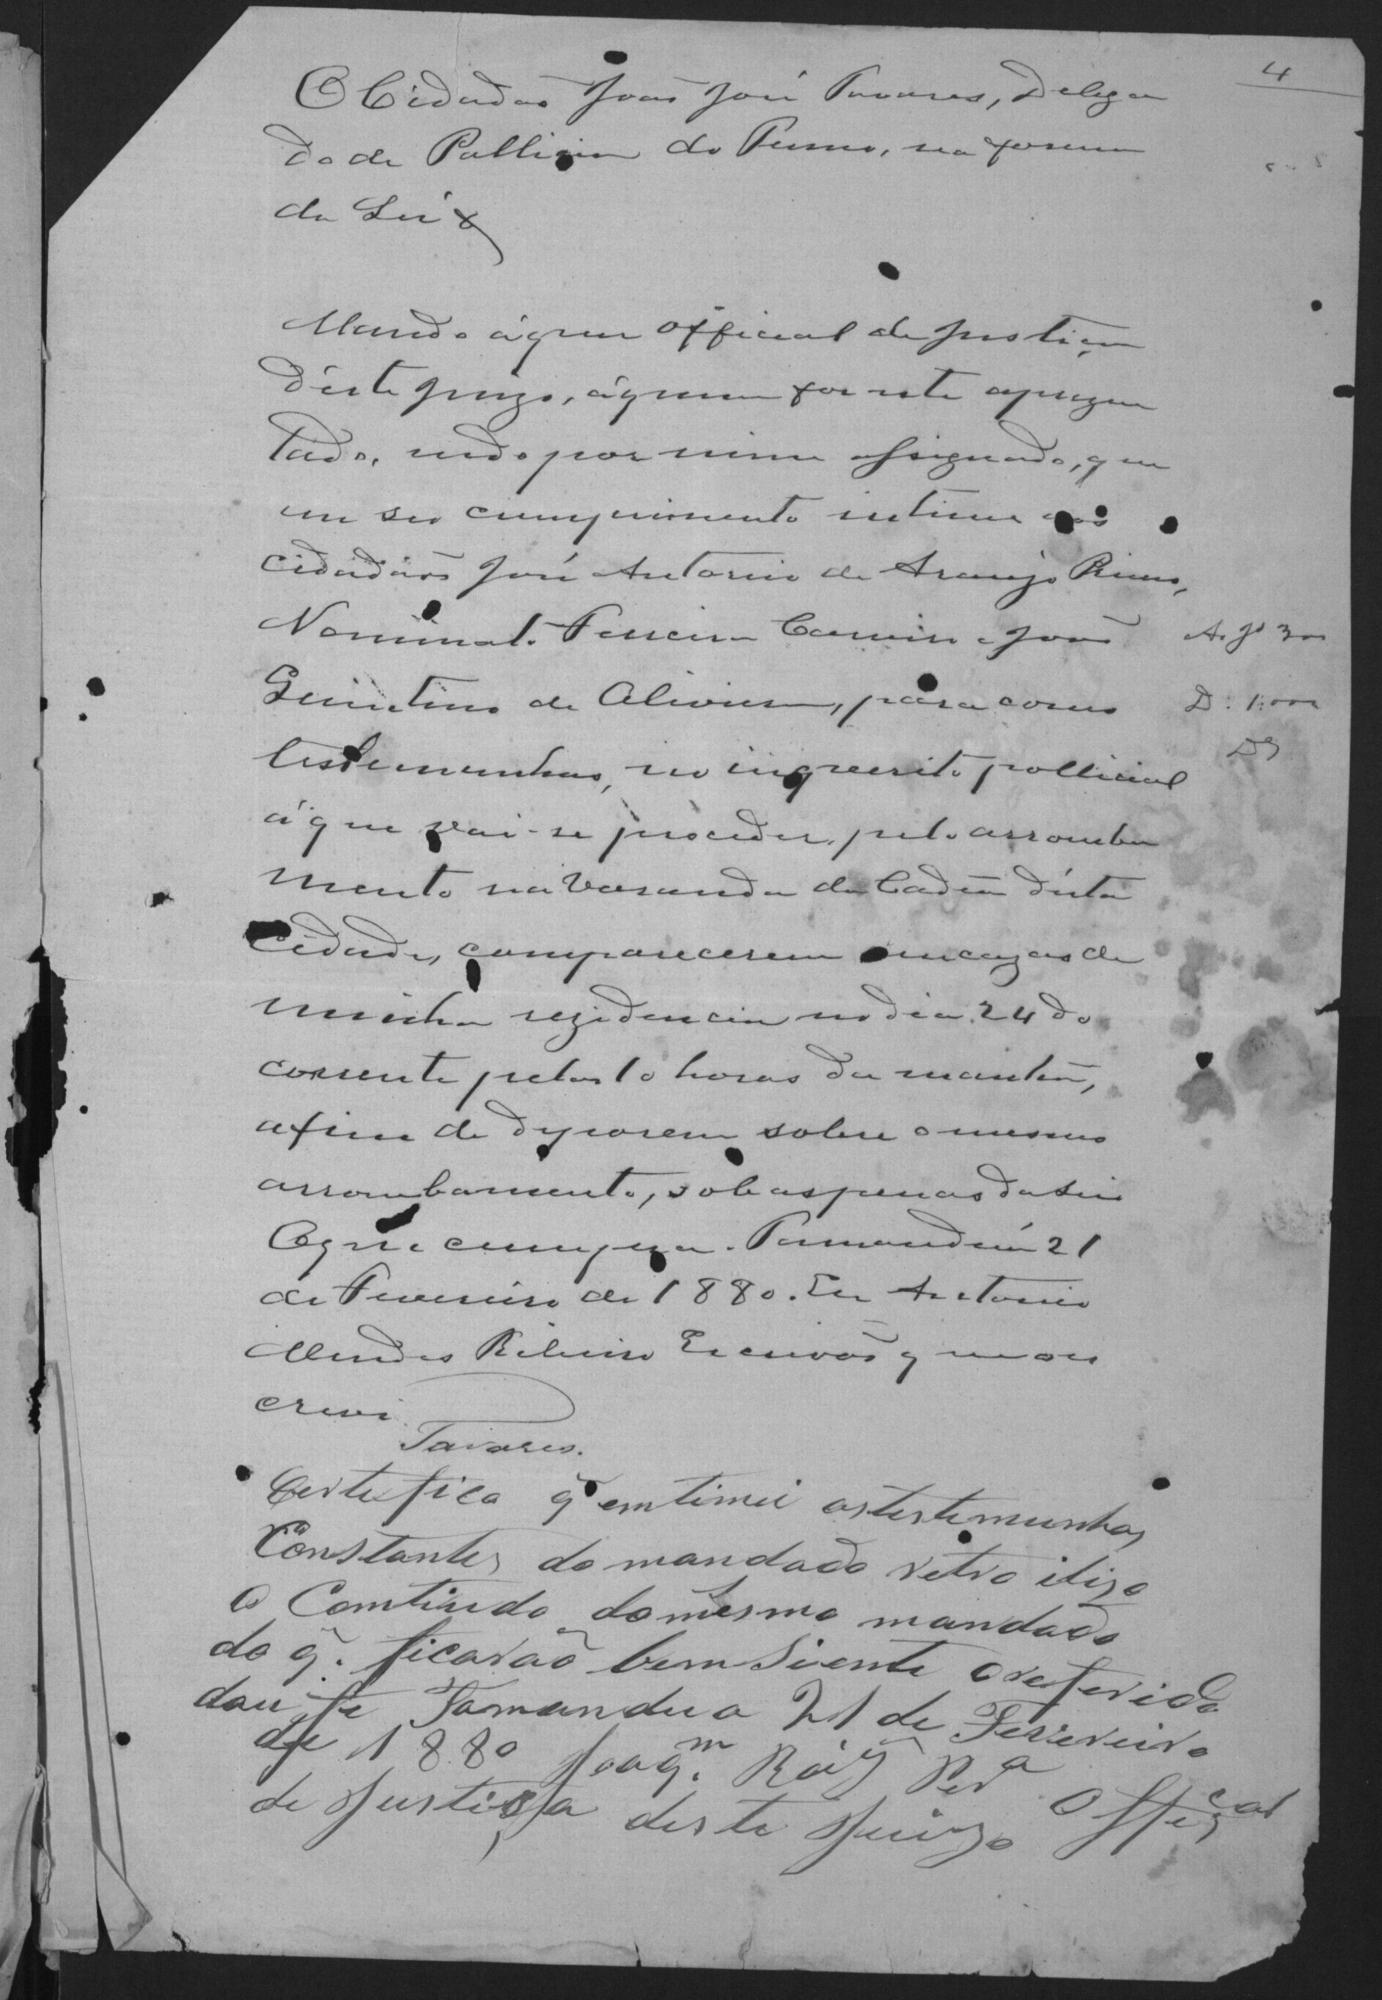 4
O Cidadão João José Tavares, Delega
do de Pollicia do Termo, na forma
da Lei &
Mando á quem official de Justiça
d'este Juizo, á quem for este aprezen
tado, indo por mim assignado, que
em seo cumprimento intime aos
cidadãos José Antonio de Araujo Rimo,
Ferreira e João
Quintino de Oliveira, para como
testemunhas, no inquerito pollicial
á que vai-se proceder, pelo arromba
mento na Varanda da Cadêa d'esta
Cidade, comparecerem em cazas de
minha rezidencia no dia 24 do
corrente pelas 10 horas da manhã,
afim de deporem sobre o mesmo
arrombamento, sob as penas da Lei
O que cumpra. Tamanduá 21
de Fevereiro de 1880. Eu Antonio
Mendes Ribeiro Escrivão que o es
crevi
Tavares.
Certefico q̃ emtimei as testemunhas
Constantes do mandado retro e lizo
o Comtiudo do mesmo mandado
do q̃. ficarão bem siente o referido
dou fe Tamandua 21 de Fevereiro
de 1880 Joaqm. Roiz Pera Official
de Justiça deste Juizo